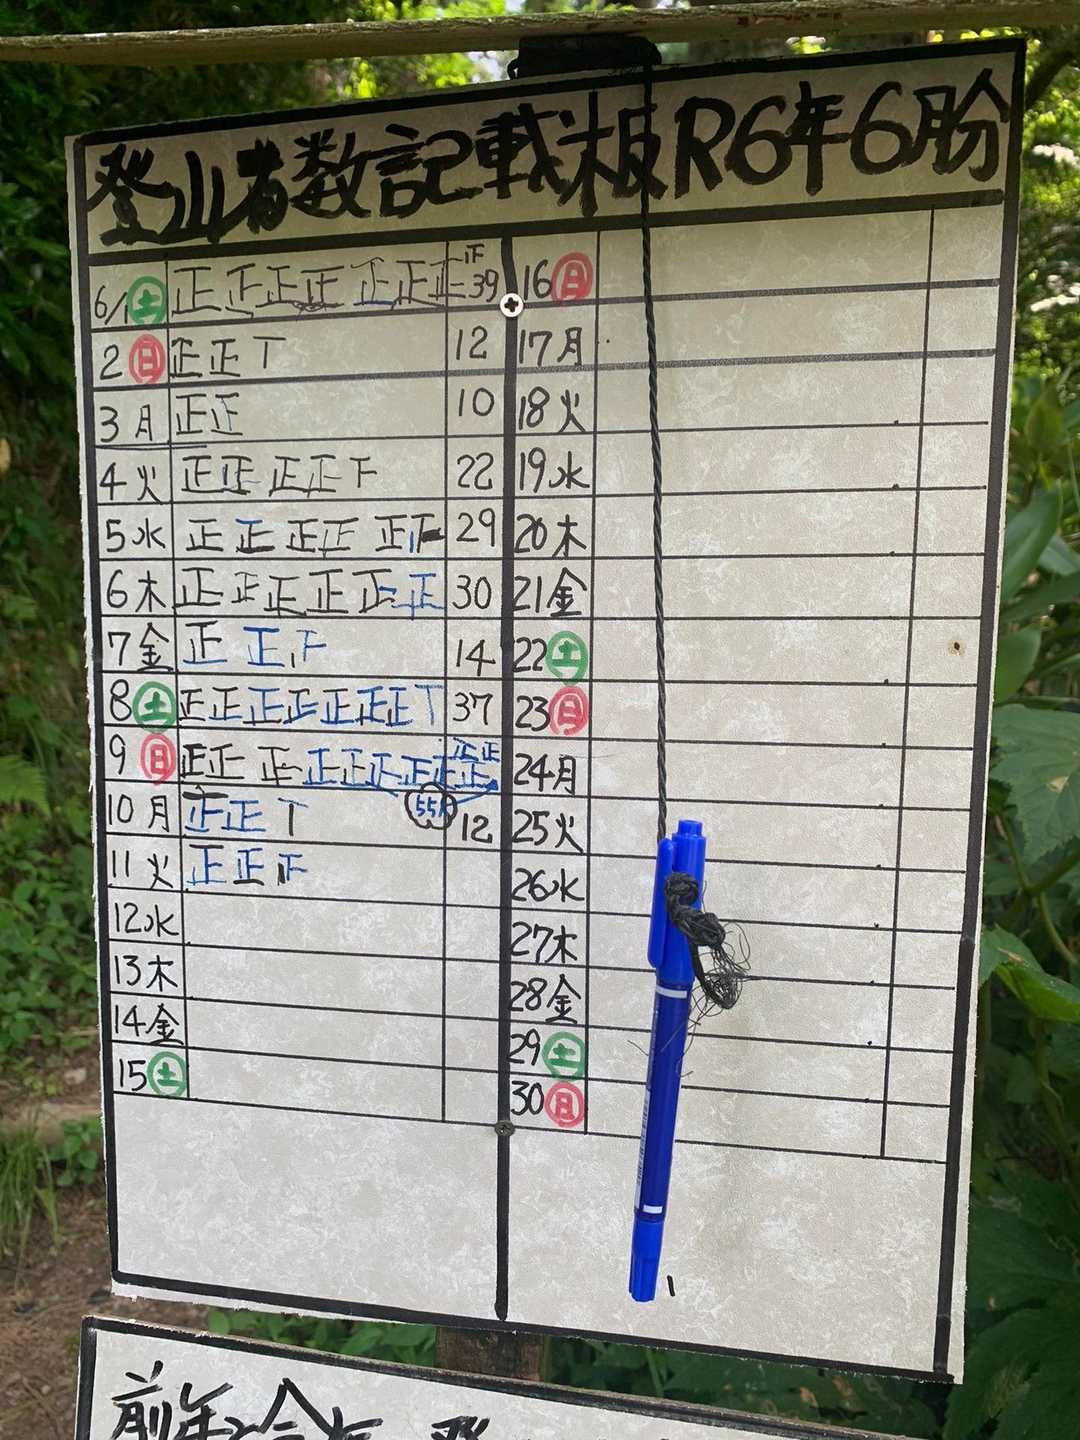 登山者数記載板R6年6月分
6/1 土 正正正正正正正正 39
2 日 正正丅 12
3 月 正正 10
4 火 正正正正 22
5 水 正正正正正 29
6 木 正正正正正正 30
7 金 正正 14
8 土 正正正正正正正丅 37
9 日 正正正正正正正正正正正 55人
10 月 正正丅 12
11 火 正正
12 水
13 木
14 金
15 土
16 日
17 月
18 火
19 水
20 木
21 金
22 土
23 日
24 月
25 火
26 水
27 木
28 金
29 土
30 日
前年